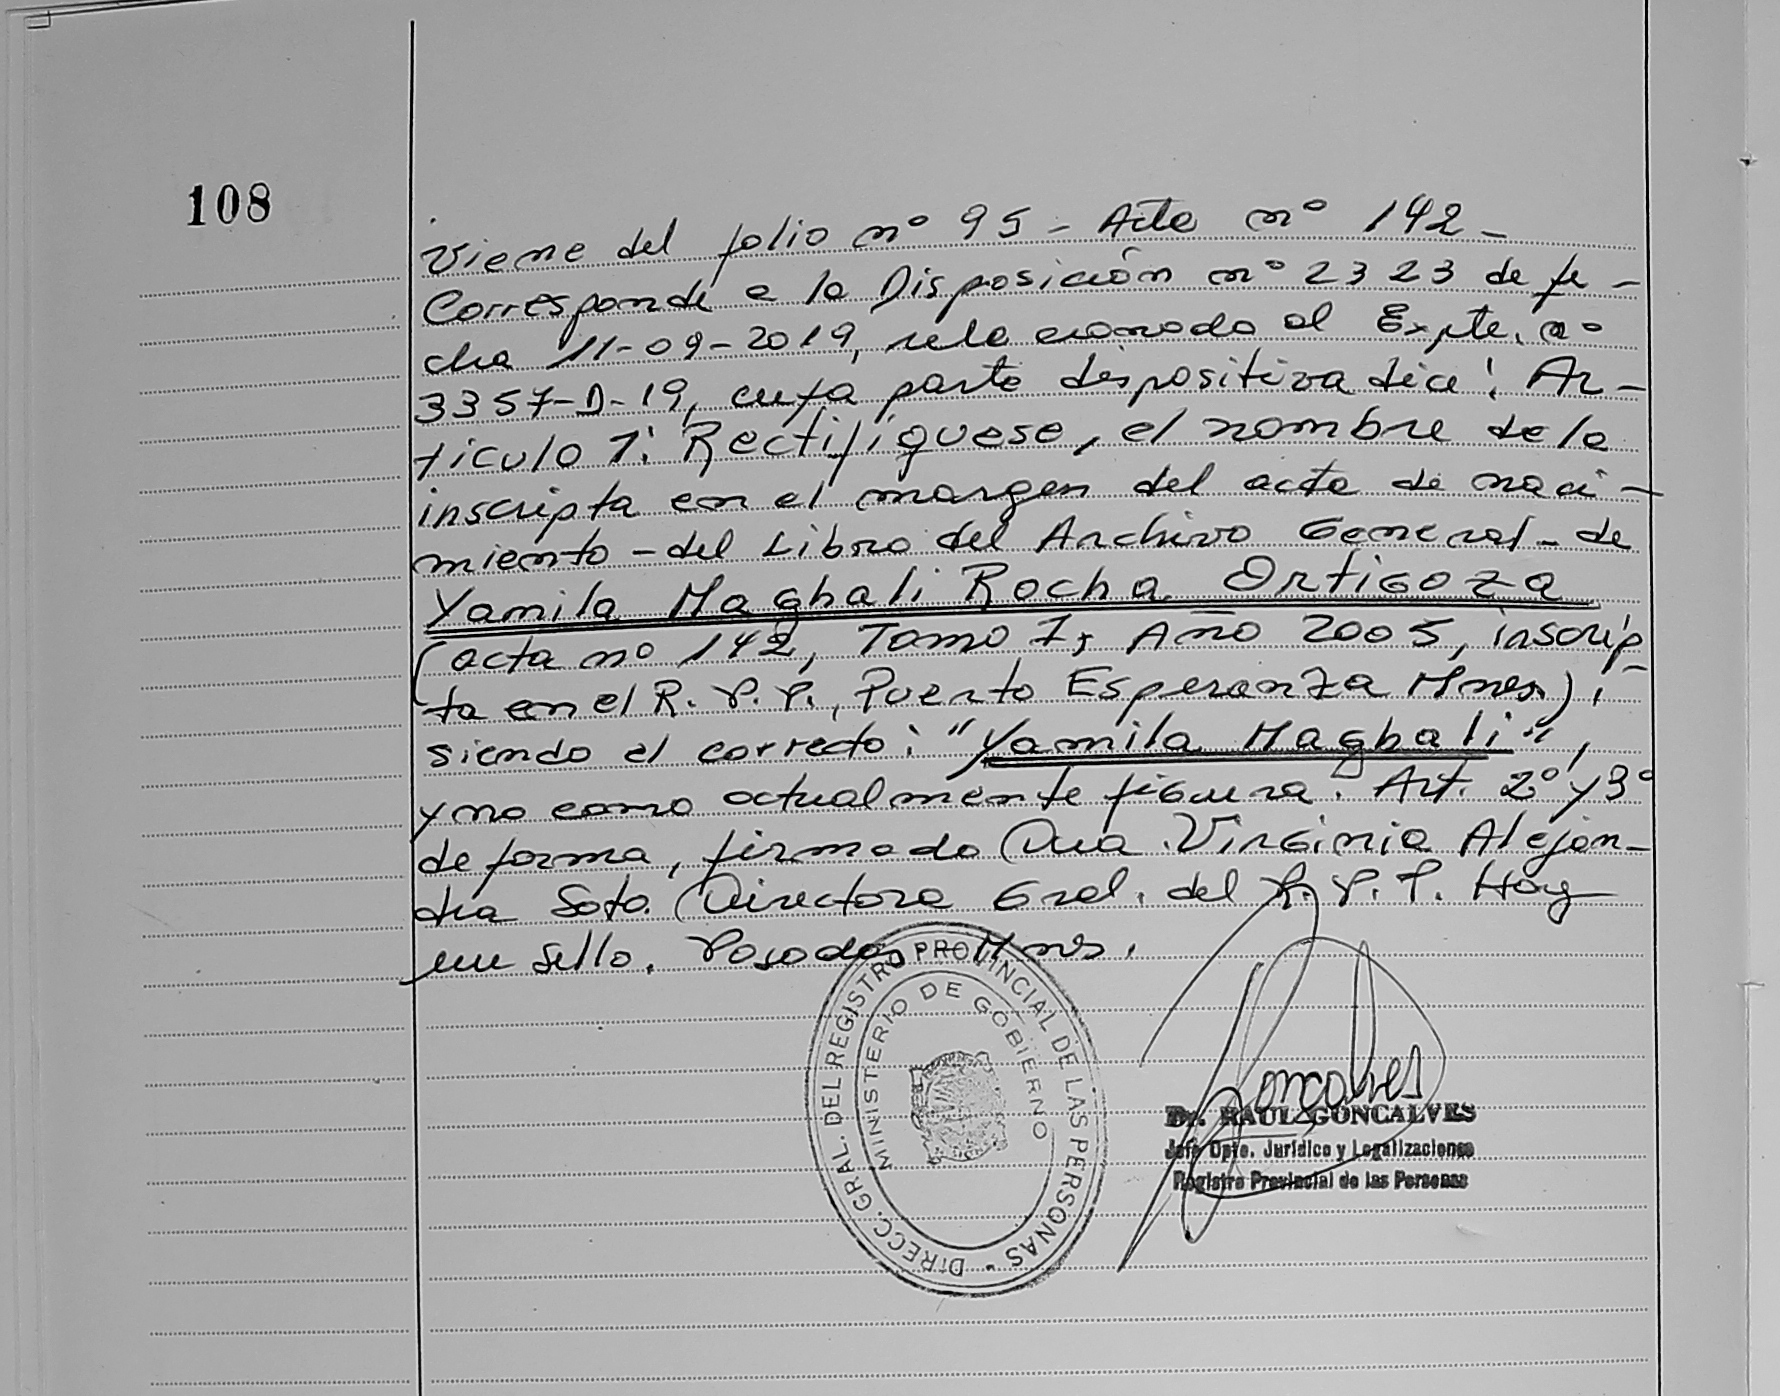 108
Viene del folio nº 95 - Acta nº 142 -
Corresponde a la Disposición nº 2323 de fe -
cha 11-09-2019, relacionado al Expte. nº
3357-D-19, cuya parte dispositiva dice: Ar -
tículo 1: Rectifíquese, el nombre de la
inscripta en el margen del acta de naci -
miento - del Libro del Archivo General - de
Yamila Maghali Rocha Ortigoza
(acta nº 142, Tomo I, Año 2005, inscrip -
ta en el R. P. P., Puerto Esperanza Mnes),
siendo el correcto: "Yamila Maghali",
y no como actualmente figura. Art. 2º y 3º
de forma, firmado Dra. Virginia Alejan -
dra Soto. Directora Gral. del R. P. P. Hay
un sello. Posadas Mns.
DIRECC. GRAL. DEL REGISTRO PROVINCIAL DE LAS PERSONAS
MINISTERIO DE GOBIERNO
Goncalves
Dr. RAUL GONCALVES
Jefe Dpto. Jurídico y Legalizaciones
Registro Provincial de las Personas